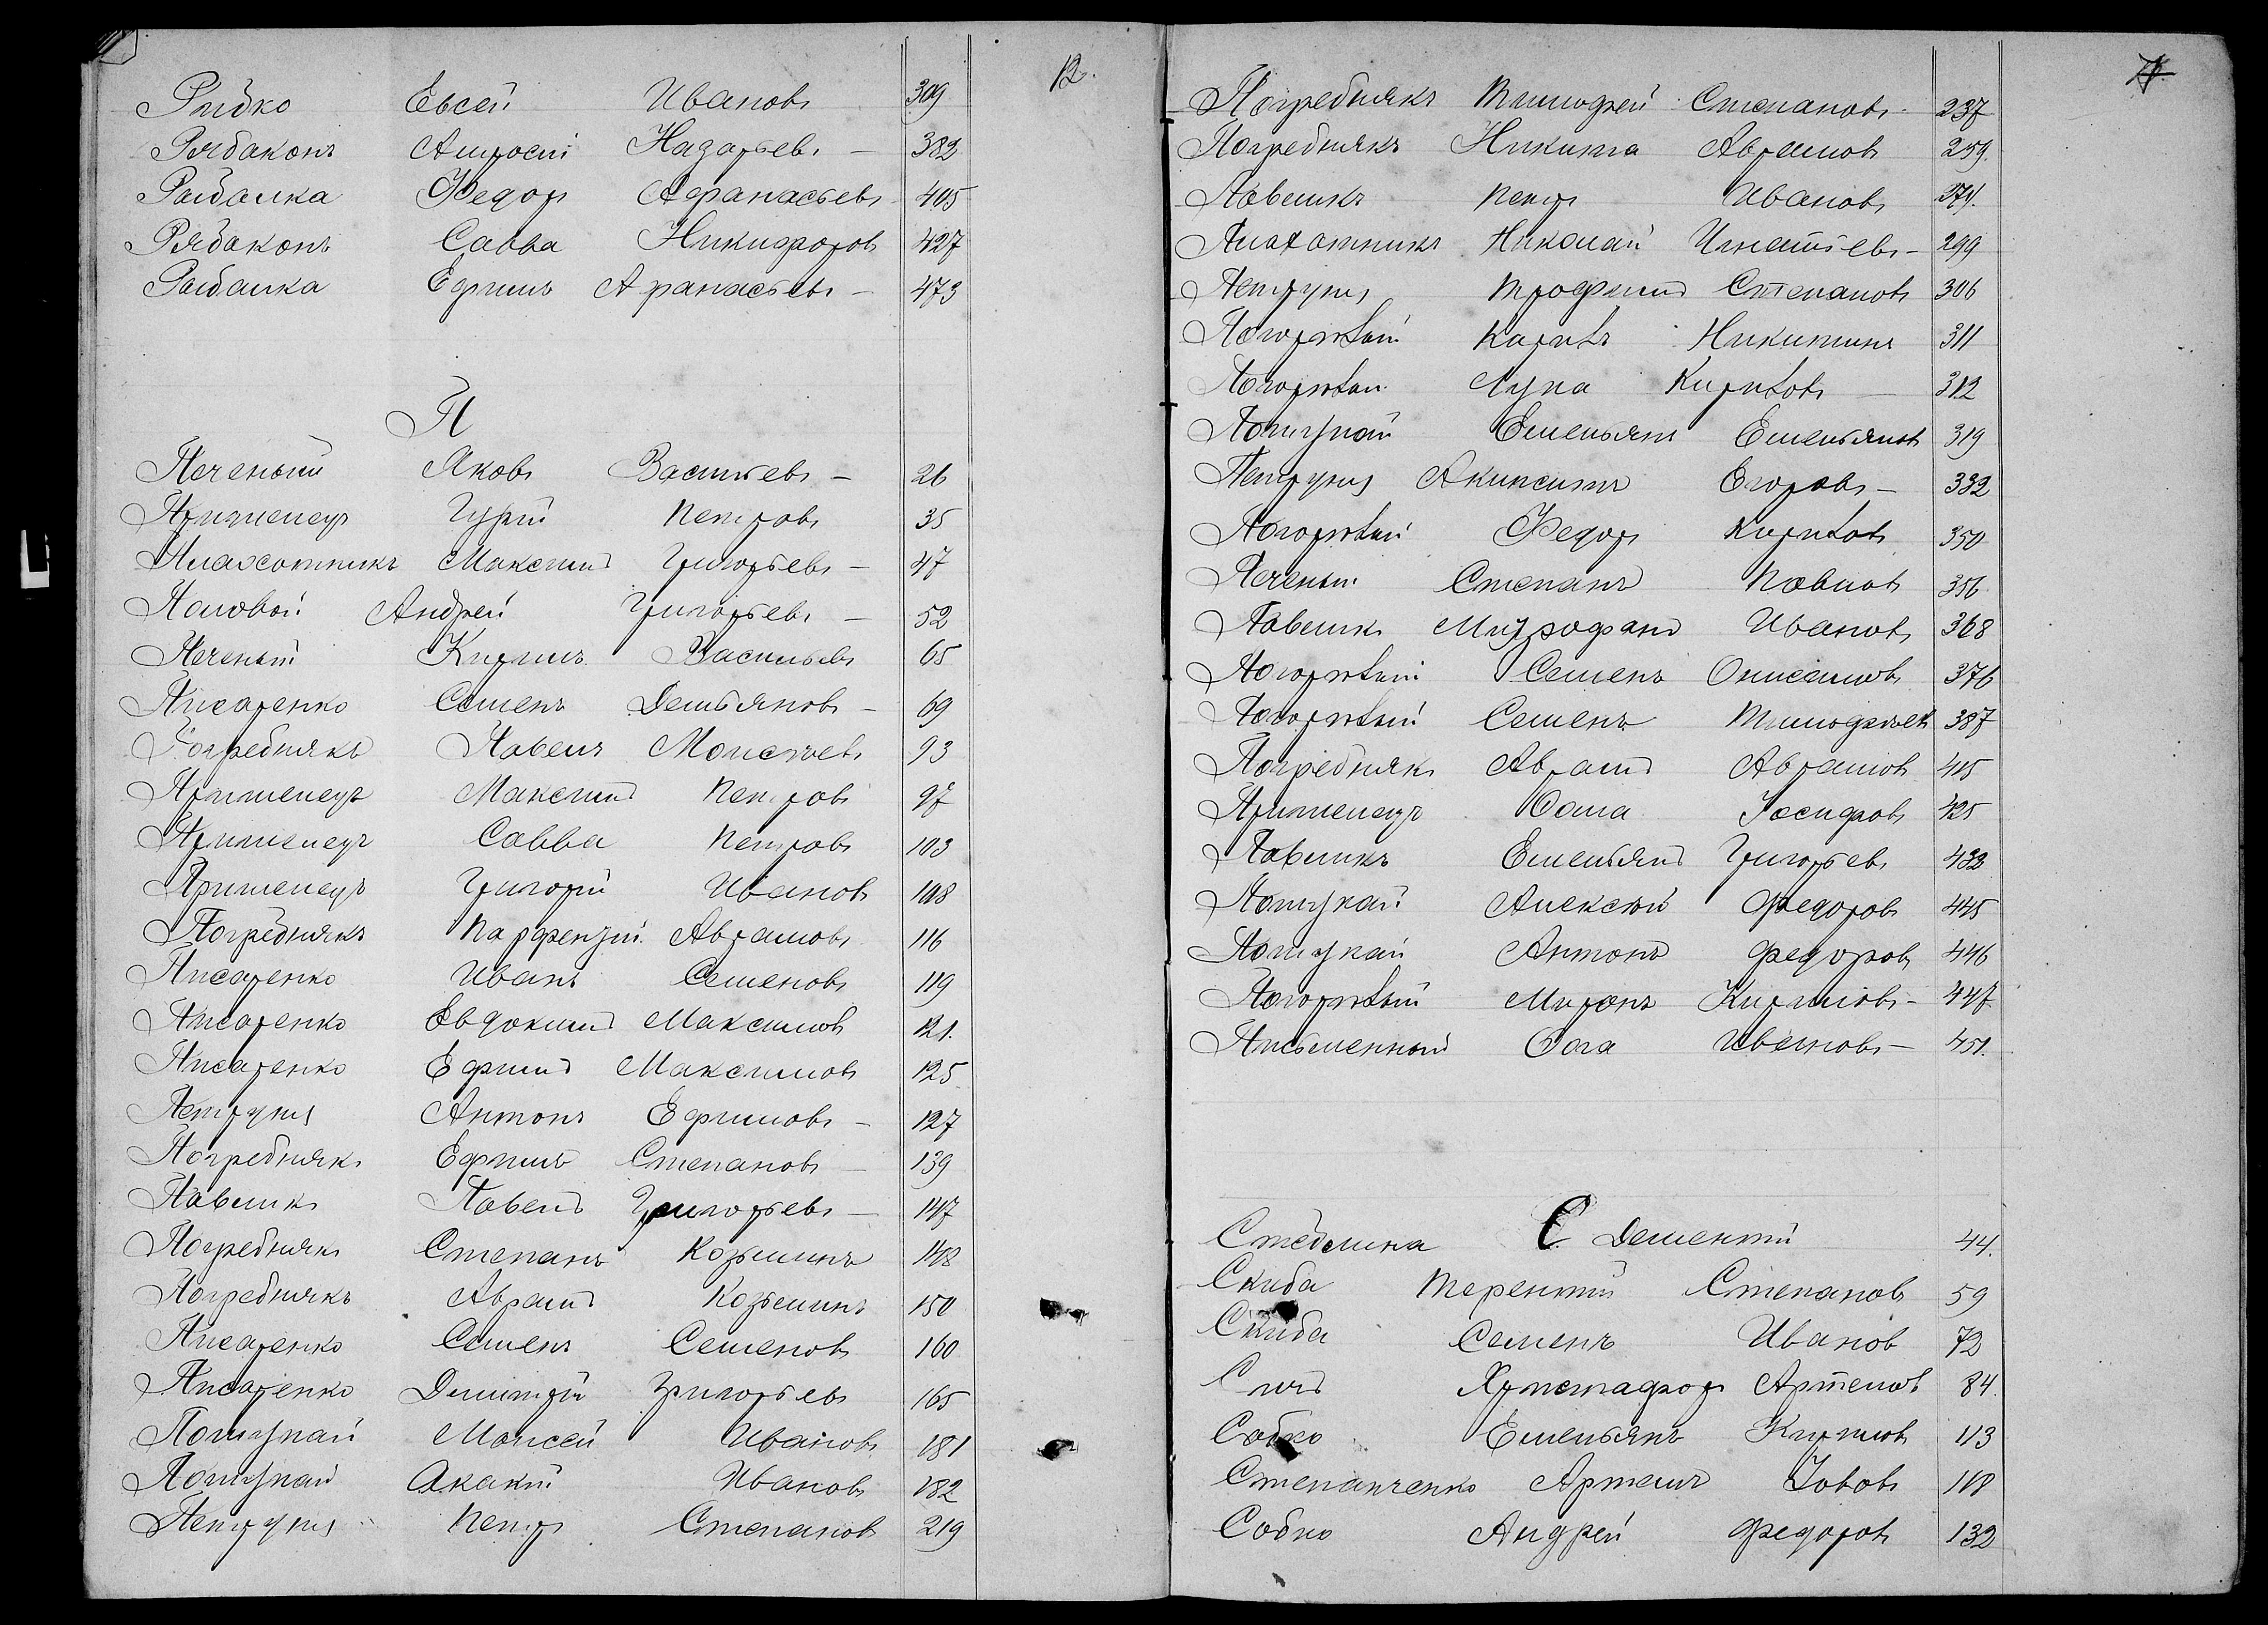 12.
Рибко Евсей Ивановъ 309
Рябаконь Амвросій Назарьевъ — 382
Рыбалка Федоръ Афанасьевъ 405
Рябаконь Савва Никифоровъ 427
Рыбалка Ефимъ Афанасьевъ — 473
П
Печеный Яковъ Васильевъ — 26
Приммецръ Гурій Петровъ 35
Плахотникъ Максимъ Григорьевъ — 47
Половой Андрей Григорьевъ — 52
Печеный Кирилъ Васильевъ 65
Писаренко Семенъ Демьяновъ — 69
Погребнякъ Павелъ Моисеевъ 93
Максимъ Петровъ 97
Савва Петровъ 103
Григорій Ивановъ 108
Погребнякъ Парфентій Аврамовъ 116
Писаренко Иванъ Семеновъ 119
Писаренко Евдокимъ Максимовъ 121.
Писаренко Ефимъ Максимовъ 125
Петруня Антонъ Ефимовъ — 127
Погребнякъ Ефимъ Степановъ — 139
Павликъ Павелъ Григорьевъ — 147
Погребнякъ Степанъ Козьминъ 148
Погребнякъ Аврамъ Козьминъ 150
Писаренко Семенъ Семеновъ 160
Писаренко Димитрій Григорьевъ 165
Потупай Моисей Ивановъ 181
Потупай Акакій Ивановъ 182
Петруня Петръ Степановъ 219
Погребнякъ Тимофей Степановъ 237
Погребнякъ Никита Аврамовъ 259
Павликъ Петръ Ивановъ 274.
Плахотникъ Николай Игнатіевъ — 299
Петруня Трофимъ Степановъ 306
Погорѣлый Кирилъ Никитинъ 311
Погорѣлый Лука Кириловъ — 312
Потупай Емельянъ Емельяновъ 319
Петруня Акиндинъ Егоровъ — 332
Погорѣлый Федоръ Кириловъ 350
Печеный Степанъ Павловъ 356
Павликъ Митрофанъ Ивановъ 368
Погорѣлый Семенъ Онисимовъ 376
Погорѣлый Семенъ Тимофеевъ 387
Погребнякъ Аврамъ Аврамовъ 415
Ѳома Іосифовъ 425
Павликъ Емельянъ Григорьевъ 432
Потупай Алексѣй Федоровъ 445
Потупай Антонъ Федоровъ 446
Погорѣлый Миронъ Кириловъ — 447
Письменный Ѳома Ивановъ — 451.
С
Стеблина Дементій 44.
Скиба Терентій Степановъ 59
Скиба Семенъ Ивановъ 72
Христофоръ Артемовъ 84.
Собко Емельянъ Кириловъ 113
Степанченко Артемъ Іововъ 118
Собко Андрей Федоровъ 132